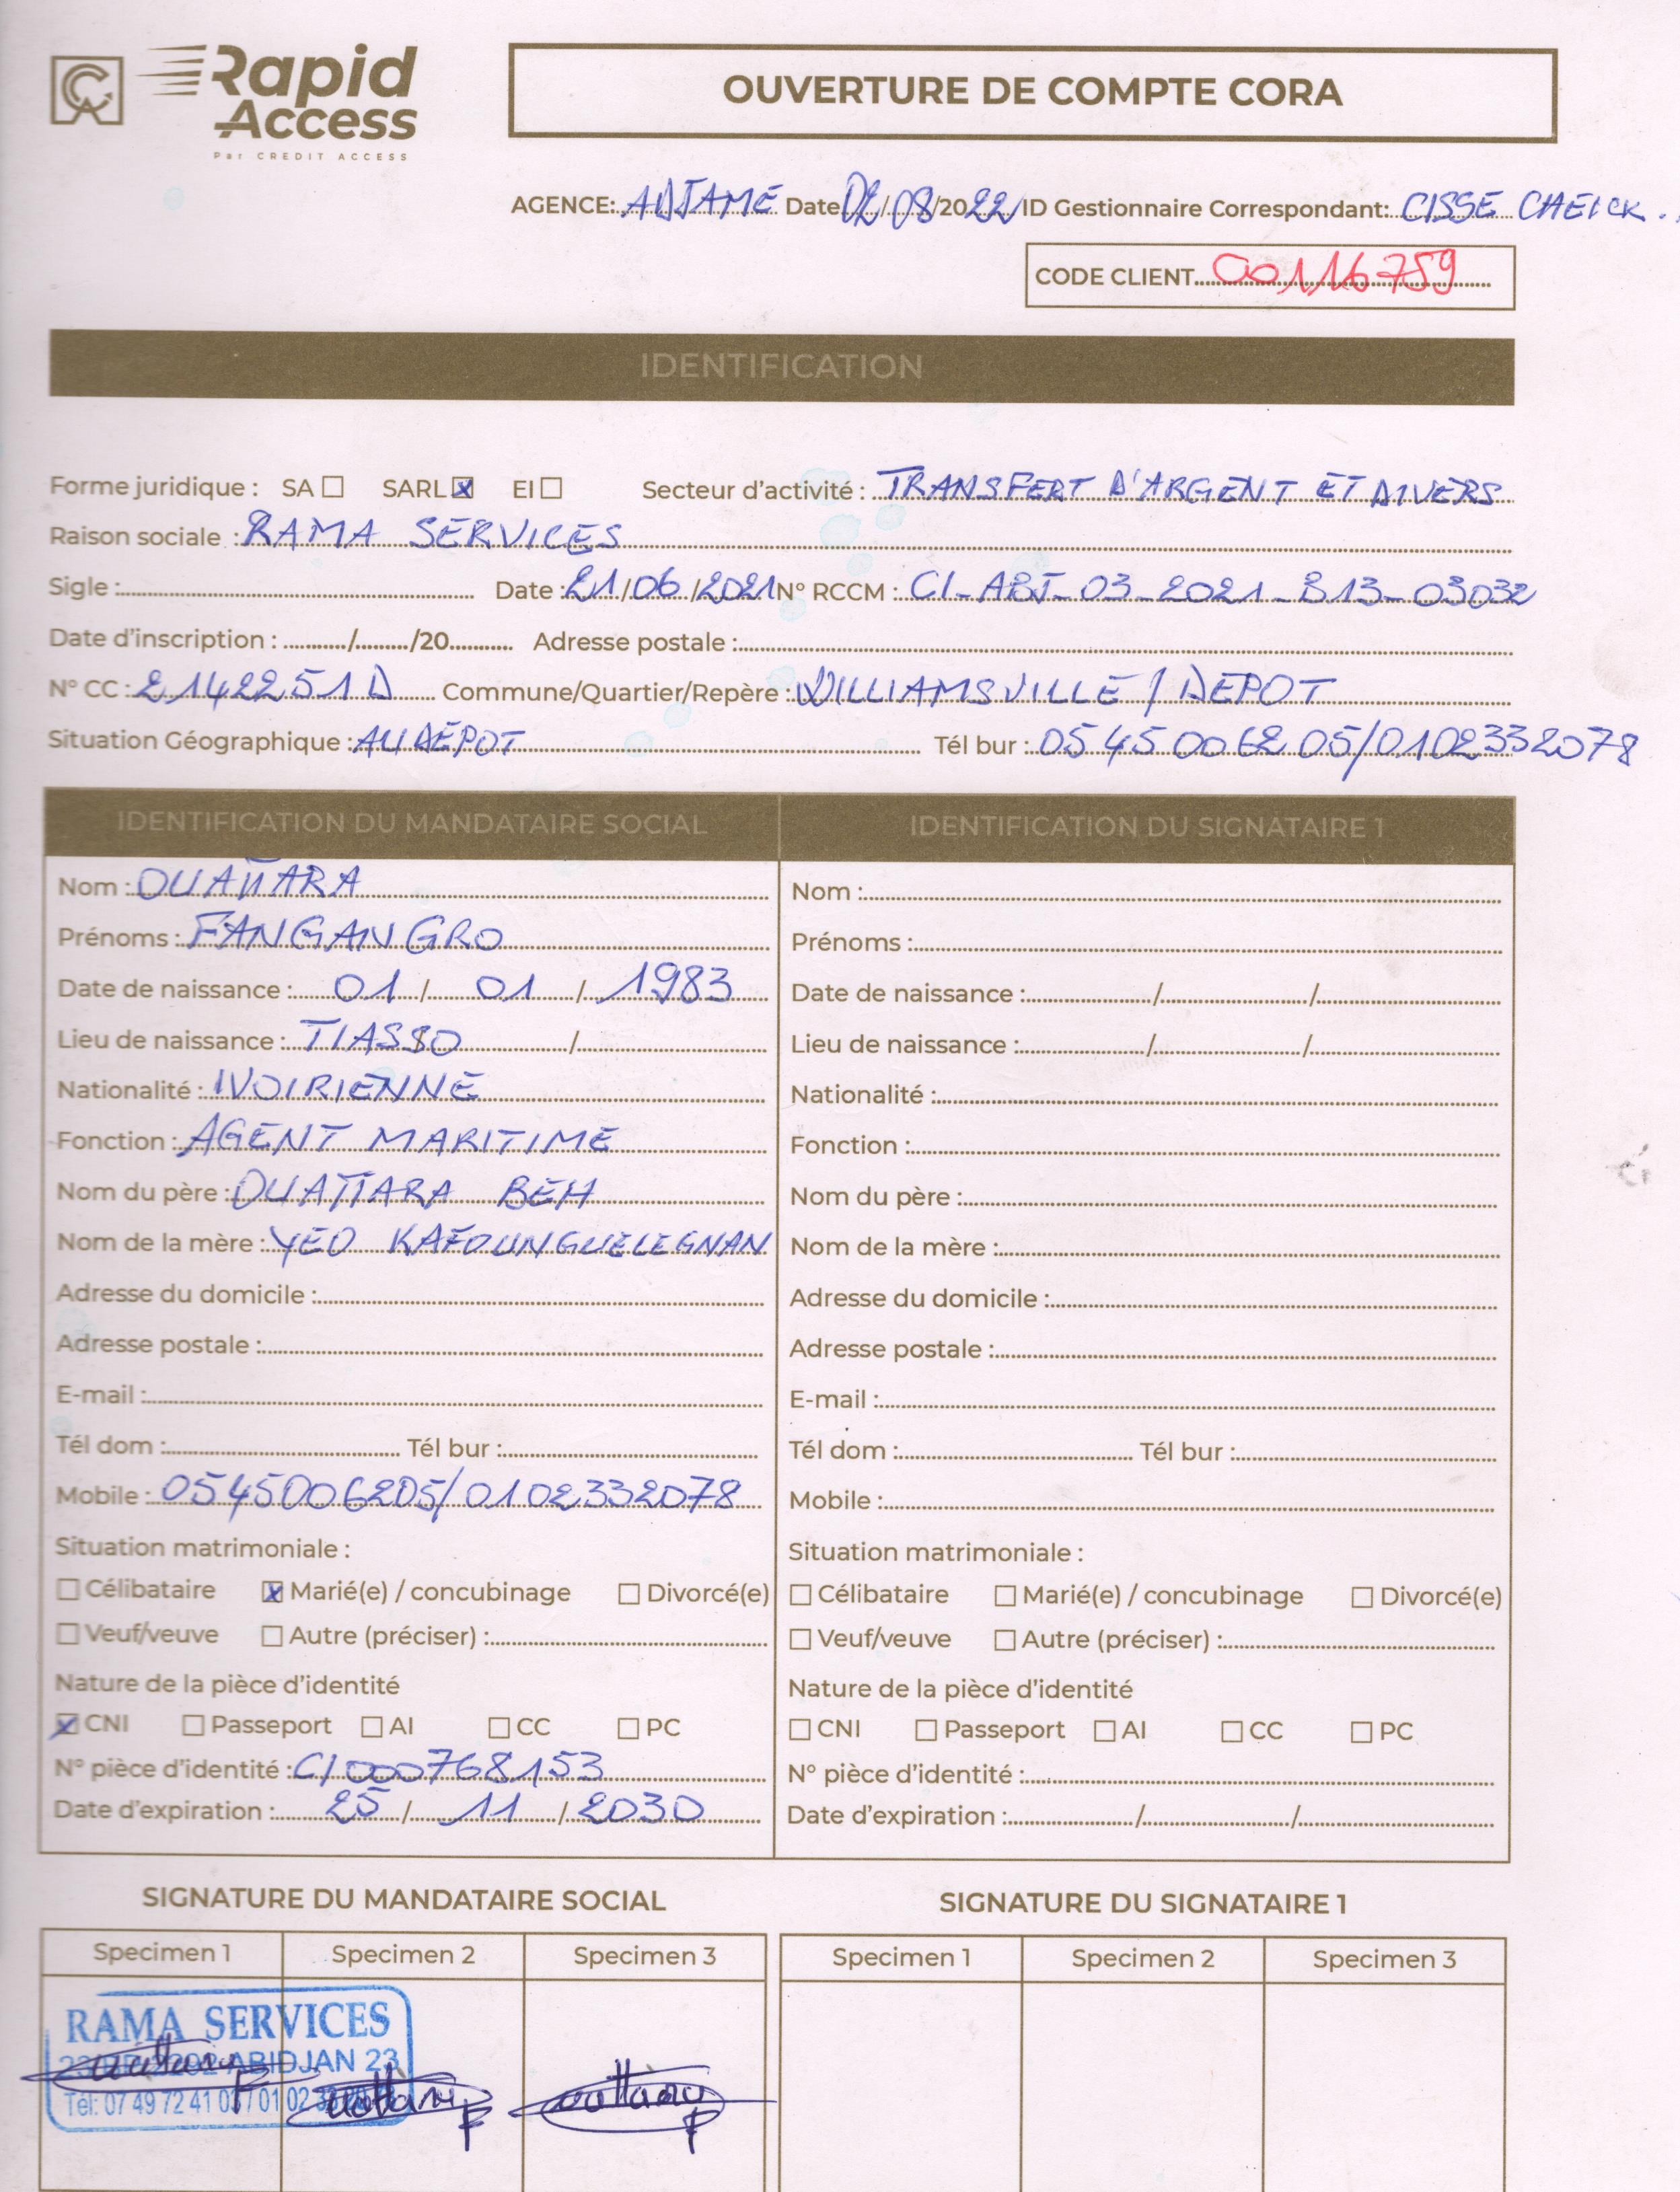 Rapid Access
Par CREDIT ACCESS
OUVERTURE DE COMPTE CORA
AGENCE: ADJAME Date 02/08/2022 ID Gestionnaire Correspondant: CISSE CHEICK.
CODE CLIENT 00116759
IDENTIFICATION
Forme juridique : SA ☐ SARL ☒ EI ☐ Secteur d'activité : TRANSFERT D'ARGENT ET DIVERS
Raison sociale : RAMA SERVICES
Sigle : Date : 21/06/2021 N° RCCM : CI-ABJ-03-2021-B13-03032
Date d'inscription : ......./......./20....... Adresse postale :
N° CC : 2142251D Commune/Quartier/Repère : WILLIAMSVILLE / DEPOT
Situation Géographique : AU DÉPOT Tél bur : 0545006205/0102332078
IDENTIFICATION DU MANDATAIRE SOCIAL
Nom : OUATTARA
Prénoms : FANGANGRO
Date de naissance : 01 / 01 / 1983
Lieu de naissance : TIASSO /
Nationalité : IVOIRIENNE
Fonction : AGENT MARITIME
Nom du père : OUATTARA BEH
Nom de la mère : YEO KAFOUNGUELEGNAN
Adresse du domicile :
Adresse postale :
E-mail :
Tél dom : Tél bur :
Mobile : 0545006205/0102332078
Situation matrimoniale :
☐ Célibataire ☒ Marié(e) / concubinage ☐ Divorcé(e)
☐ Veuf/veuve ☐ Autre (préciser) :
Nature de la pièce d'identité
☒ CNI ☐ Passeport ☐ AI ☐ CC ☐ PC
N° pièce d'identité : CI000768153
Date d'expiration : 25 / 11 / 2030
IDENTIFICATION DU SIGNATAIRE 1
Nom :
Prénoms :
Date de naissance : / /
Lieu de naissance : / /
Nationalité :
Fonction :
Nom du père :
Nom de la mère :
Adresse du domicile :
Adresse postale :
E-mail :
Tél dom : Tél bur :
Mobile :
Situation matrimoniale :
☐ Célibataire ☐ Marié(e) / concubinage ☐ Divorcé(e)
☐ Veuf/veuve ☐ Autre (préciser) :
Nature de la pièce d'identité
☐ CNI ☐ Passeport ☐ AI ☐ CC ☐ PC
N° pièce d'identité :
Date d'expiration : / /
SIGNATURE DU MANDATAIRE SOCIAL
Specimen 1 Specimen 2 Specimen 3
RAMA SERVICES
ABIDJAN 23
Tél: 07 49 72 41 01 02
SIGNATURE DU SIGNATAIRE 1
Specimen 1 Specimen 2 Specimen 3